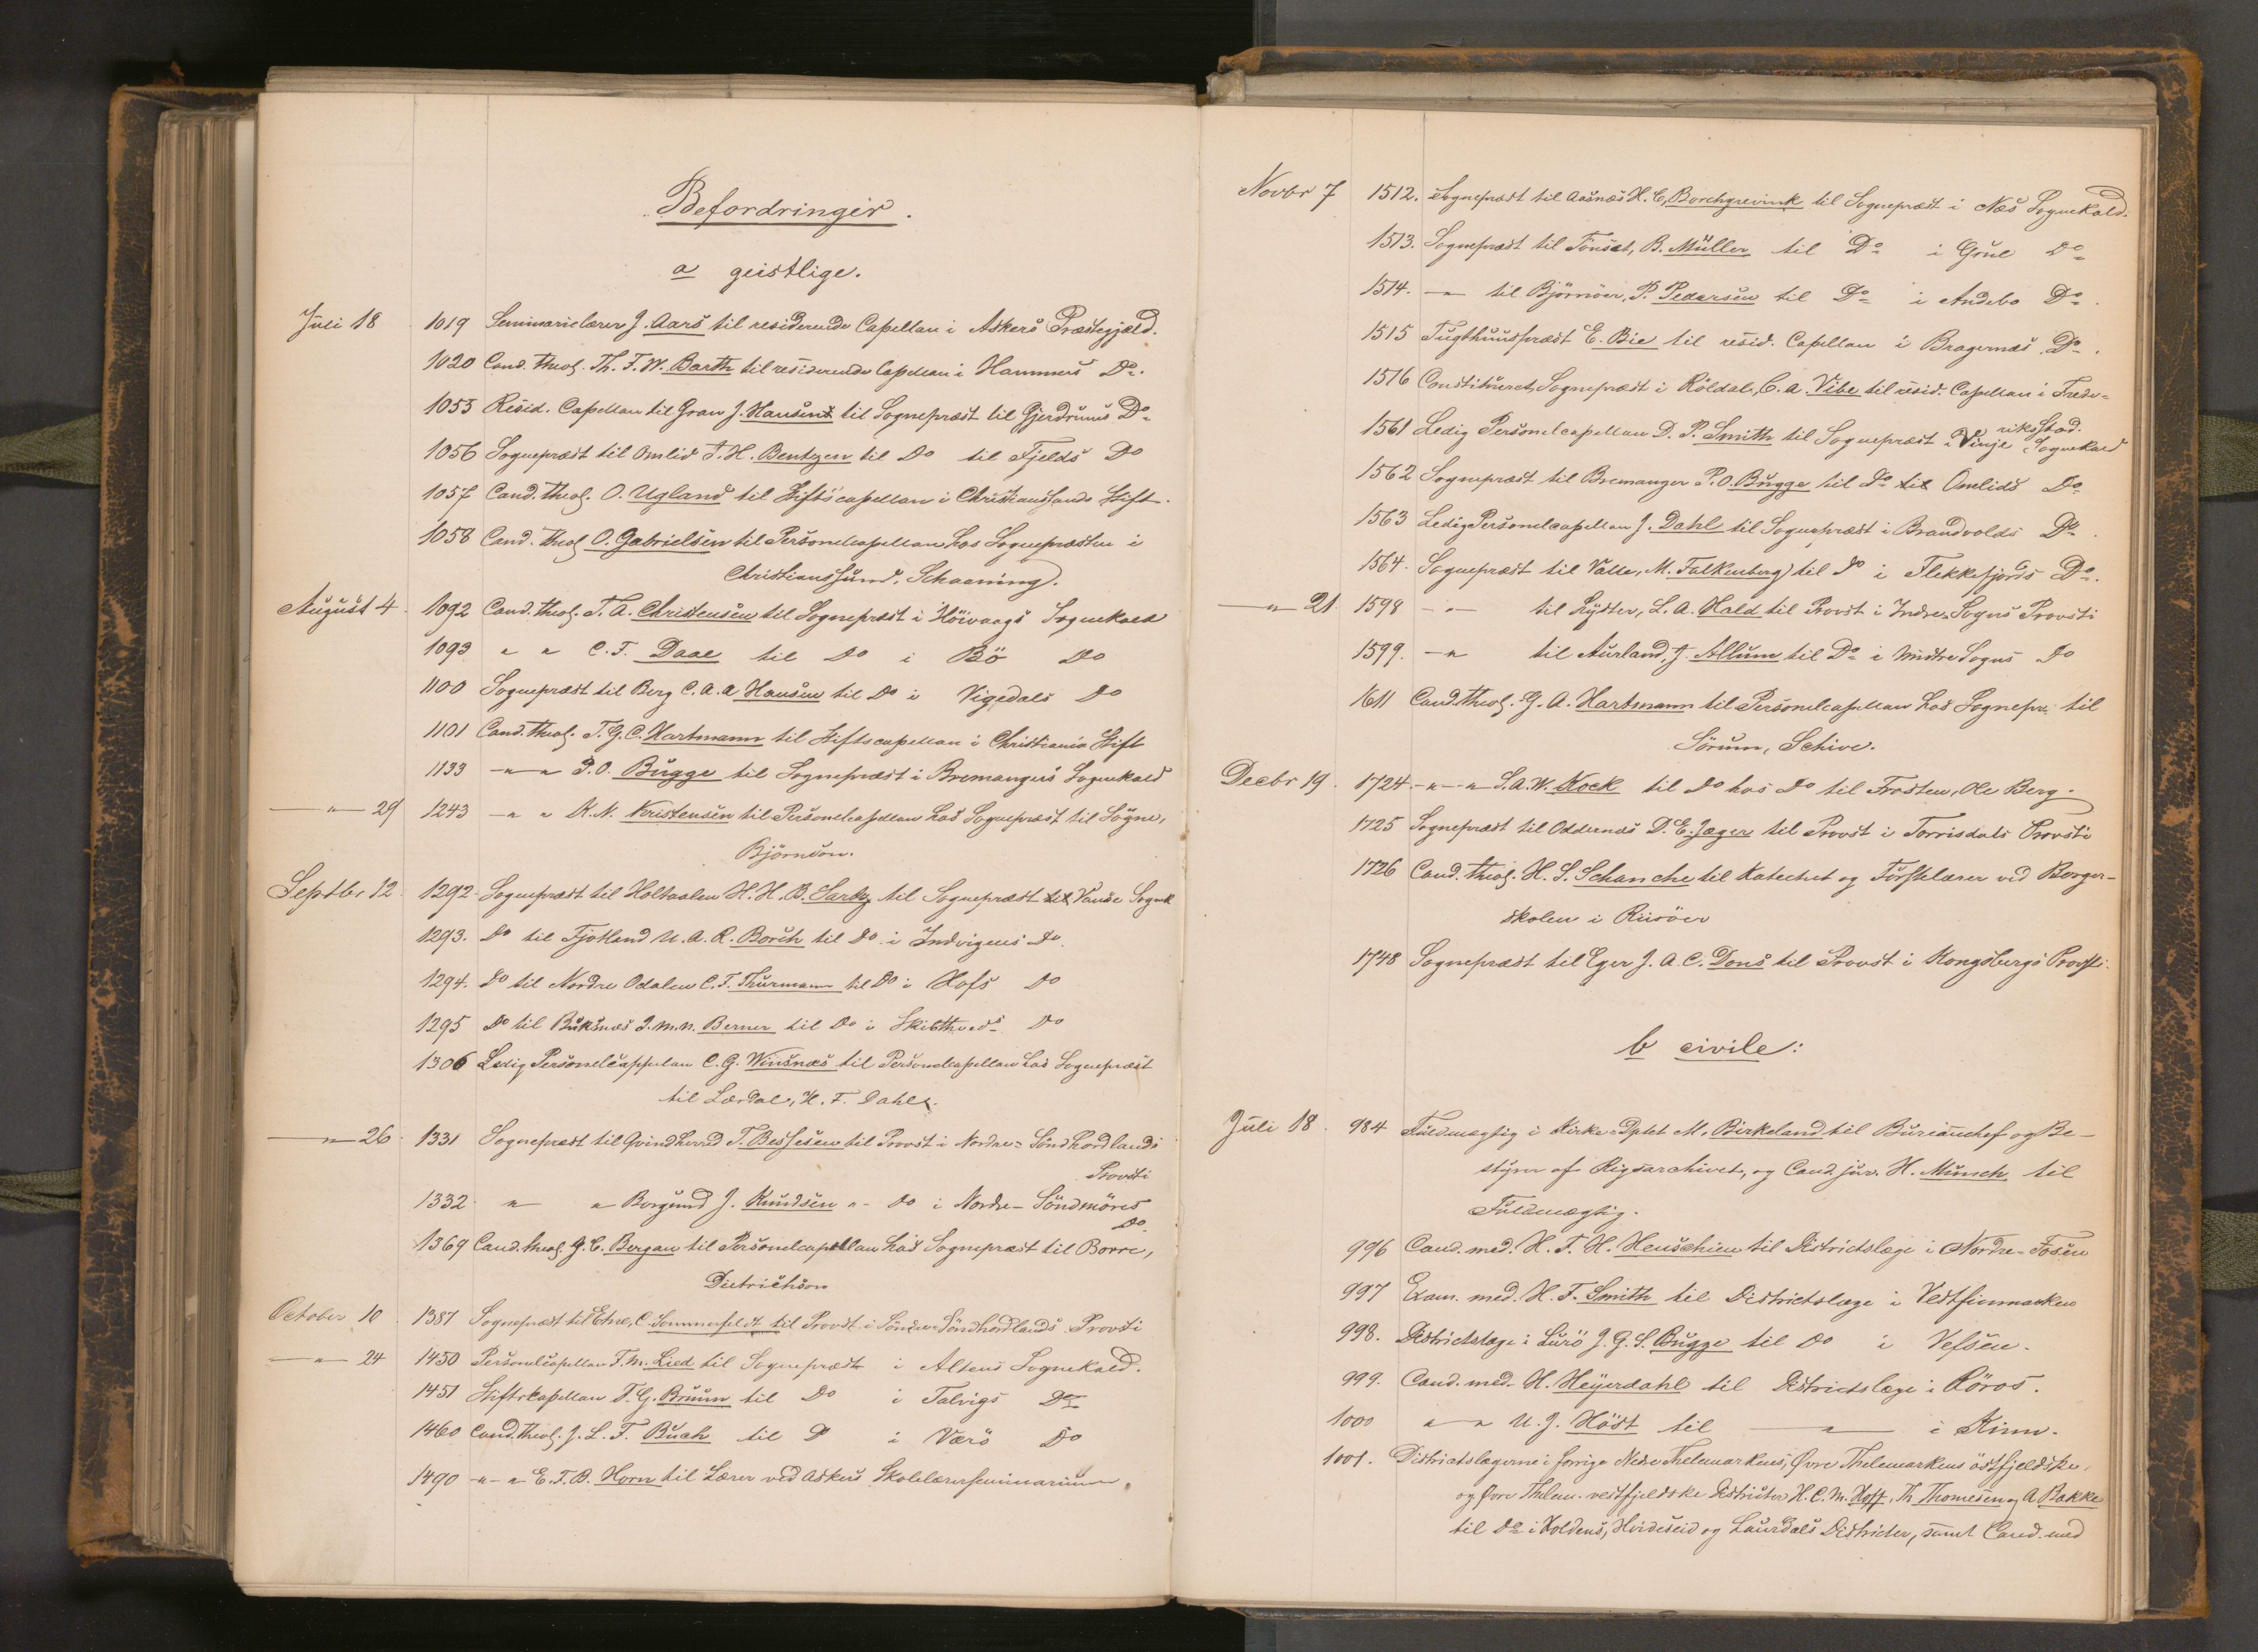 Befordringer.
a geistlige.
Juli 18 1019 Seminarielærer J. Aars til residerende Capellan i Askers Præstegjæld.
1020 Cand. theol. Th. F. W. Barth til residerende Capellan i Hammers Do.
1053 Resid. Capellan til Gran J. Hansens til Sognepræst til Gjerdrums Do
1056 Sognepræst til Omlid T. H. Bentzen til Do til Fjelds Do
1057 Cand. theol. O. Ugland til Stiftscapellan i Christianssands Stift.
1058 Cand. theol O. Gabrielsen til Personelcapellan hos Sognepræsten i
Christianssund, Schaaning.
August 4. 1092 Cand. theol. T. A. Christensen til Sognepræst i Höivaags Sognekald
1093 " " C. F. Daae til Do i Bö Do
1100 Sognepræst til Berg C. A. A Hansen til Do i Vigedals Do
1101 Cand. theol. T. G. C. Hartmann til Stiftscapellan i Christiania Stift
1133 - " " P. O. Bugge til Sognepræst i Bremangers Sognekald
— " — 29 1243 - " " K. N. Kristensen til Personelcapellan hos Sognepræst til Sögne,
Björnson.
Septbr 12. 1292. Sognepræst til Holtaalen H. H. B. Sartz til Sognepræst til Vanse Sognk
1293. Do til Fjotland U. A. R. Borch til Do i Indvigens Do
1294. Do til Nordre Odalen C. F. Thurmann til Do i Hofs Do
1295 Do til Buksnæs J. M. N. Berner til Do i Skibthveds Do
1306 Ledig Personelcappelan C. G. Wiisnæs til Personelcapellan hos Sognepræst
til Lærdal, H. F. Dahl.
— " — 26. 1331 Sognepræst til Qvindherred T. Bessesen til Provst i Nordre-Söndhordlands
Provsti
1332. " " Borgund J. Knudsen "- Do i Nordre-Söndmöres
Do.
1369 Cand. theol. G. C. Bergan til Personelcapellan hos Sognepræst til Borre,
Dietrichson
October 10. 1387 Sognepræst til Etne, C. Sommerfeldt til Provst i Söndre Söndhordlands Provsti
— " — 24 1450 Personelcapellan F. M. Lied til Sognepræst i Altens Sognekald.
1451 Stiftskapellan T. G. Bruun til Do i Talvigs Do
1460 Cand. theol. J. L. F. Buch til Do i Værö Do
1490 - " - " E. T. B. Horn til Lærer ved Askers Skolelærerseminarium.
Novbr 7 1512. Sognepræst til Aasnæs H. C. Borchgrevink til Sognepræst i Næs Sognekald.
1513. Sognepræst til Tönset, B. Müller til Do i Grue Do
1514. — " til Björnöer, P. Pedersen til Do i Andebo Do.
1515 Tugthuuspræst E. Bie til resid. Capellan i Bragernæs Do.
1516 Constitueret Sognepræst i Röldal, C. A. Vibe til resid. Capellan i Frede-
riksstad.
1561 Ledig Personelcapellan D. P. Smith til Sognepræst i Vinje Sognekald
1562 Sognepræst til Bremanger P. O. Bugge til Do til Omlids Do
1563 Ledig Personelcapellan J. Dahl til Sognepræst i Brandvolds Do.
1564. Sognepræst til Valle, M. Falkenberg) til Do i Flekkefjords Do.
— " 21. 1598 - " - til Lyster, L. A. Hald til Provst i Indre Sogns Provsti
1599. — " til Aurland, J. Allum til Do i Midtre Sogns Do
1611 Cand. theol. G. A. Hartmann til Personelcapellan hos Sognepr. til
Sörum, Schive.
Decbr 19. 1724. - " - " S. A. W. Kock til Do hos Do til Frosten, Ole Berg.
1725 Sognepræst til Oddernæs D. E. Jæger til Provst i Torrisdals Provsti
1726 Cand. theol. H. S. Schanche til Katechet og Förstelærer ved Borger-
skolen i Riisöer
1748 Sognepræst til Eger J. A. C. Dons til Provst i Kongsbergs Provsti.
b civile:
Juli 18. 984 Fuldmægtig i Kirke-Dptet M. Birkeland til Bureauchef og Be-
styrer af Rigsarchivet, og Cand. jur. H. Munch til
Fuldmægtig.
996 Cand. med. H. T. H. Henschien til Districtslæge i Nordre-Fosen
997 Exam. med. H. F. Smith til Districtslæge i Vestfinmarken
998. Districtslæge i Lurö J. G. S. Bugge til Do i Vefsen.
999. Cand. med. H. Heyerdahl til Districtslæge i Röros.
1000 " — " U. J. Höst til — " — i Kinn.
1001. Districtslægerne i forrige Nedre Thelemarkens, Øvre Thelemarkens östfjeldske
og Øvre Thelem. vestfjeldske Districter H. C. M. Hoff, Th Thomesen og A Bakke
til Do i Holdens, Hvideseid og Laurdals Districter, samt Cand. med